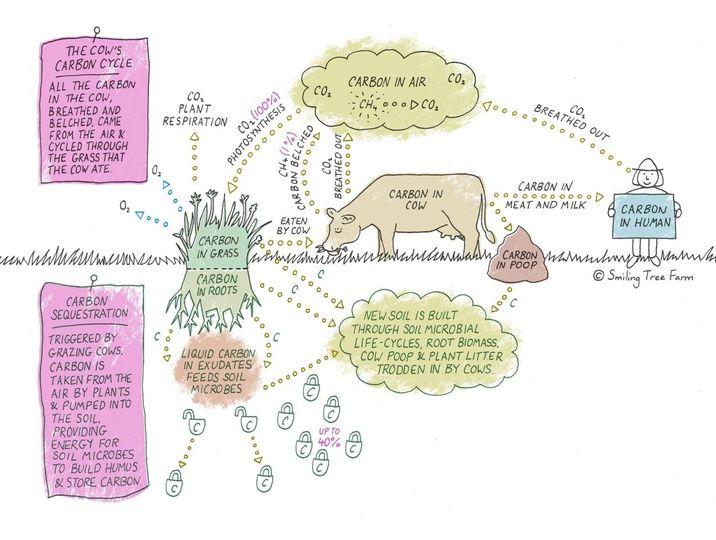 THE COW'S
CARBON CYCLE
ALL THE CARBON
IN THE COW,
BREATHED AND
BELCHED, CAME
FROM THE AIR &
CYCLED THROUGH
THE GRASS THAT
THE COW ATE.
CO₂
PLANT
RESPIRATION
CO₂ (100%)
PHOTOSYNTHESIS
CH₄ (1%)
CARBON BELCHED
CO₂
BREATHED OUT
CO₂
CARBON IN AIR
CO₂
CH₄ CO₂
CO₂
BREATHED OUT
O₂
O₂
EATEN
BY COW
CARBON IN
COW
CARBON IN
MEAT AND MILK
CARBON
IN HUMAN
CARBON
IN GRASS
CARBON
IN ROOTS
CARBON
IN POOP
© Smiling Tree Farm
C
C
C
C
C
C
CARBON
SEQUESTRATION
TRIGGERED BY
GRAZING COWS,
CARBON IS
TAKEN FROM THE
AIR BY PLANTS
& PUMPED INTO
THE SOIL,
PROVIDING
ENERGY FOR
SOIL MICROBES
TO BUILD HUMUS
& STORE CARBON.
LIQUID CARBON
IN EXUDATES
FEEDS SOIL
MICROBES
NEW SOIL IS BUILT
THROUGH SOIL MICROBIAL
LIFE-CYCLES, ROOT BIOMASS,
COW POOP & PLANT LITTER
TRODDEN IN BY COWS.
C
C
C
C
C
C
UP TO
40%
C
C
C
C
C